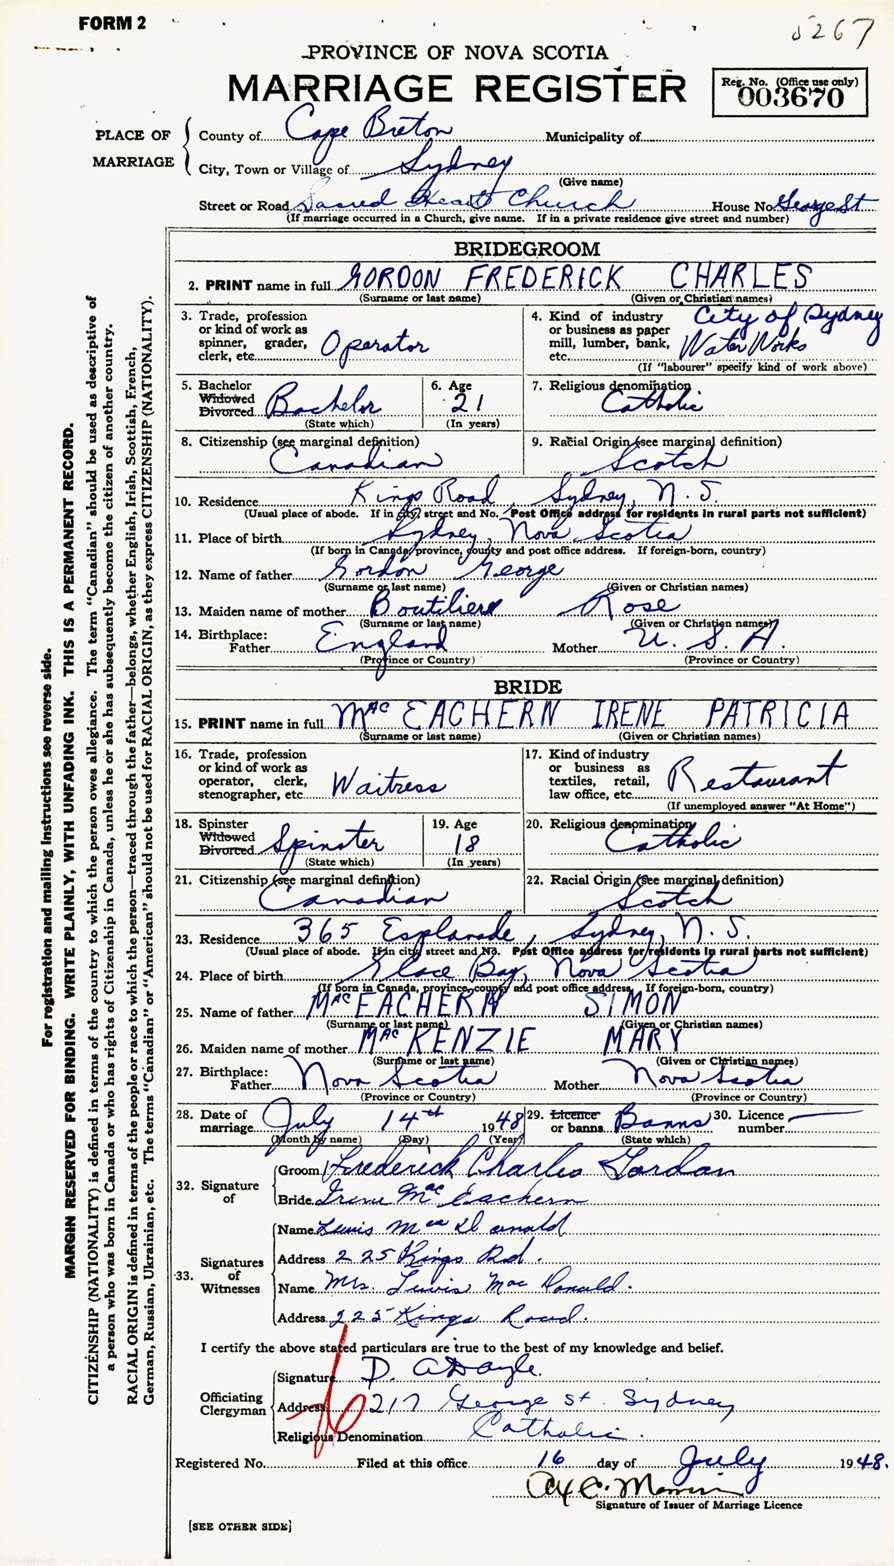 FORM 2
5267
PROVINCE OF NOVA SCOTIA
MARRIAGE REGISTER
Reg. No. (Office use only)
003670
PLACE OF MARRIAGE
County of Cape Breton Municipality of
City, Town or Village of Sydney
(Give name)
Street or Road Sacred Heart Church House No. George St
(If marriage occurred in a Church, give name. If in a private residence give street and number)
BRIDEGROOM
2. PRINT name in full GORDON FREDERICK CHARLES
(Surname or last name) (Given or Christian names)
3. Trade, profession or kind of work as spinner, grader, clerk, etc. Operator
4. Kind of industry or business as paper mill, lumber, bank, etc. City of Sydney Water Works
(If "labourer" specify kind of work above)
5. Bachelor Widowed Divorced Bachelor
(State which)
6. Age 21
(In years)
7. Religious denomination
Catholic
8. Citizenship (see marginal definition)
Canadian
9. Racial Origin (see marginal definition)
Scotch
10. Residence Kings Road, Sydney, N.S.
(Usual place of abode. If in city street and No. Post Office address for residents in rural parts not sufficient)
11. Place of birth Sydney, Nova Scotia
(If born in Canada, province, county and post office address. If foreign-born, country)
12. Name of father Gordon George
(Surname or last name) (Given or Christian names)
13. Maiden name of mother Boutilier Rose
(Surname or last name) (Given or Christian names)
14. Birthplace:
Father England Mother U.S.A.
(Province or Country) (Province or Country)
BRIDE
15. PRINT name in full MacEACHERN IRENE PATRICIA
(Surname or last name) (Given or Christian names)
16. Trade, profession or kind of work as operator, clerk, stenographer, etc. Waitress
17. Kind of industry or business as textiles, retail, law office, etc. Restaurant
(If unemployed answer "At Home")
18. Spinster Widowed Divorced Spinster
(State which)
19. Age 18
(In years)
20. Religious denomination
Catholic
21. Citizenship (see marginal definition)
Canadian
22. Racial Origin (see marginal definition)
Scotch
23. Residence 365 Esplanade, Sydney, N.S.
(Usual place of abode. If in city street and No. Post Office address for residents in rural parts not sufficient)
24. Place of birth Glace Bay, Nova Scotia
(If born in Canada, province, county and post office address. If foreign-born, country)
25. Name of father MacEACHERN SIMON
(Surname or last name) (Given or Christian names)
26. Maiden name of mother MacKENZIE MARY
(Surname or last name) (Given or Christian names)
27. Birthplace:
Father Nova Scotia Mother Nova Scotia
(Province or Country) (Province or Country)
28. Date of marriage July 14th 1948
(Month by name) (Day) (Year)
29. Licence or banns Banns
(State which)
30. Licence number
32. Signature of
Groom Frederick Charles Gordan
Bride Irene MacEachern
33. Signatures of Witnesses
Name Lewis MacDonald
Address 225 Kings Rd.
Name Mrs. Lewis MacDonald.
Address 225 Kings Road.
I certify the above stated particulars are true to the best of my knowledge and belief.
Officiating Clergyman
Signature D. A Doyle.
Address 217 George St Sydney
Religious Denomination Catholic.
Registered No. Filed at this office 16 day of July 1948.
Signature of Issuer of Marriage Licence
[SEE OTHER SIDE]
For registration and mailing instructions see reverse side.
MARGIN RESERVED FOR BINDING. WRITE PLAINLY, WITH UNFADING INK. THIS IS A PERMANENT RECORD.
CITIZENSHIP (NATIONALITY) is defined in terms of the country to which the person owes allegiance. The term "Canadian" should be used as descriptive of
a person who was born in Canada or who has rights of Citizenship in Canada, unless he or she has subsequently become the citizen of another country.
RACIAL ORIGIN is defined in terms of the people or race to which the person—traced through the father—belongs, whether English, Irish, Scottish, French,
German, Russian, Ukrainian, etc. The terms "Canadian" or "American" should not be used for RACIAL ORIGIN, as they express CITIZENSHIP (NATIONALITY).